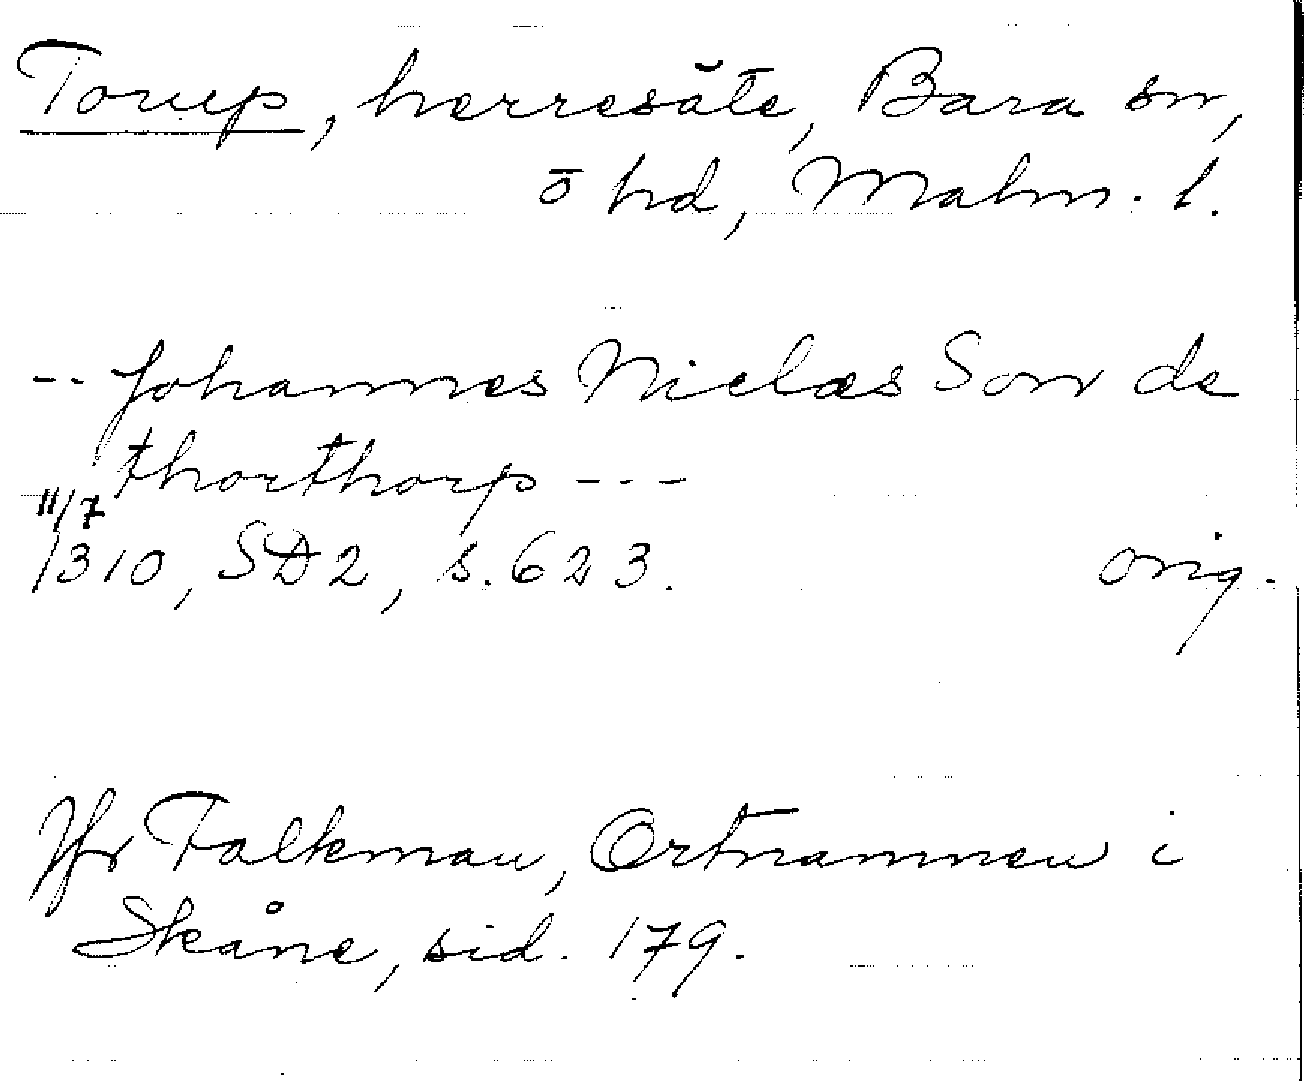 Torup, herresäte, Bara sn,
ō hd, Malm. l.
-- Johannes Nielæs Son de
thorthorp ---
11/7
1310, SD2, s. 623. orig.
Jfr Falkman, Ortnamnen i
Skåne, sid. 179.